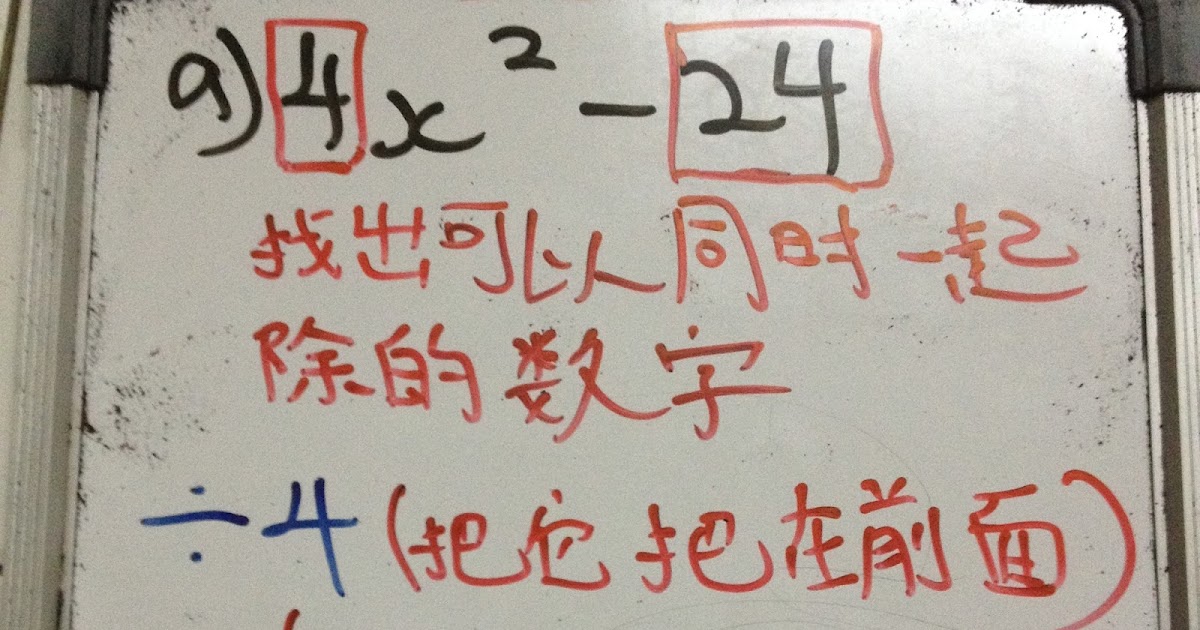 a) 4x² - 24
找出可以同时一起
除的数字
÷4 (把它把在前面)